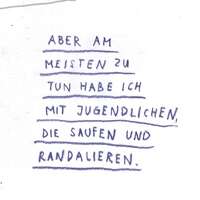 ABER AM
MEISTEN ZU
TUN HABE ICH
MIT JUGENDLICHEN,
DIE SAUFEN UND
RANDALIEREN.